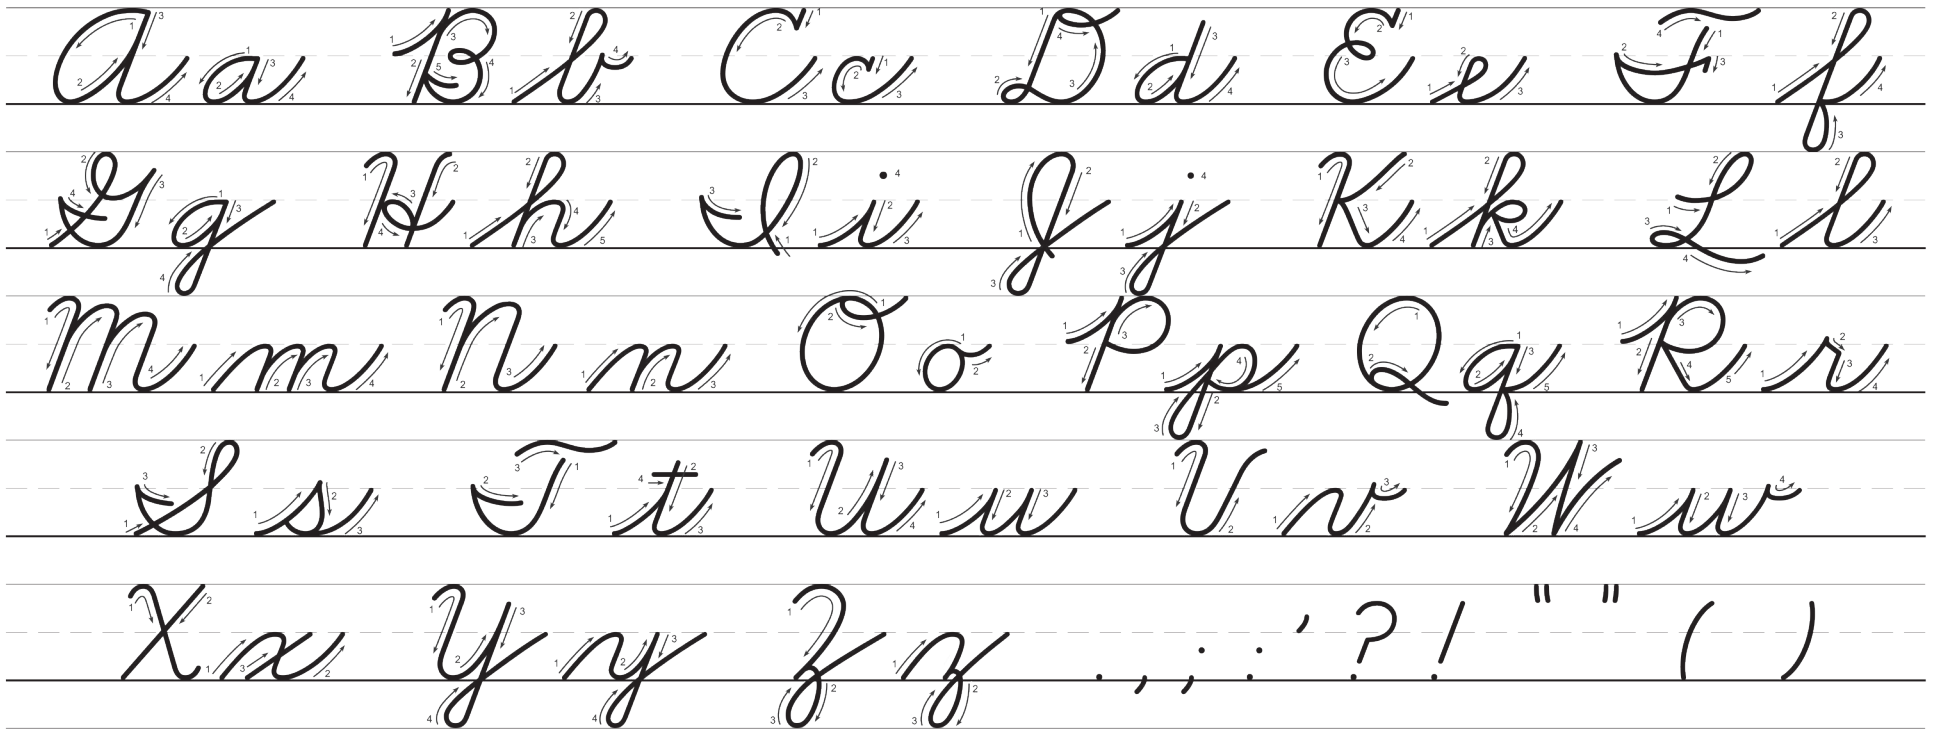 A a B b C c D d E e F f
G g H h I i J j K k L l
M m N n O o P p Q q R r
S s T t U u V v W w
X x Y y Z z . , ; : ' ? ! " " ( )